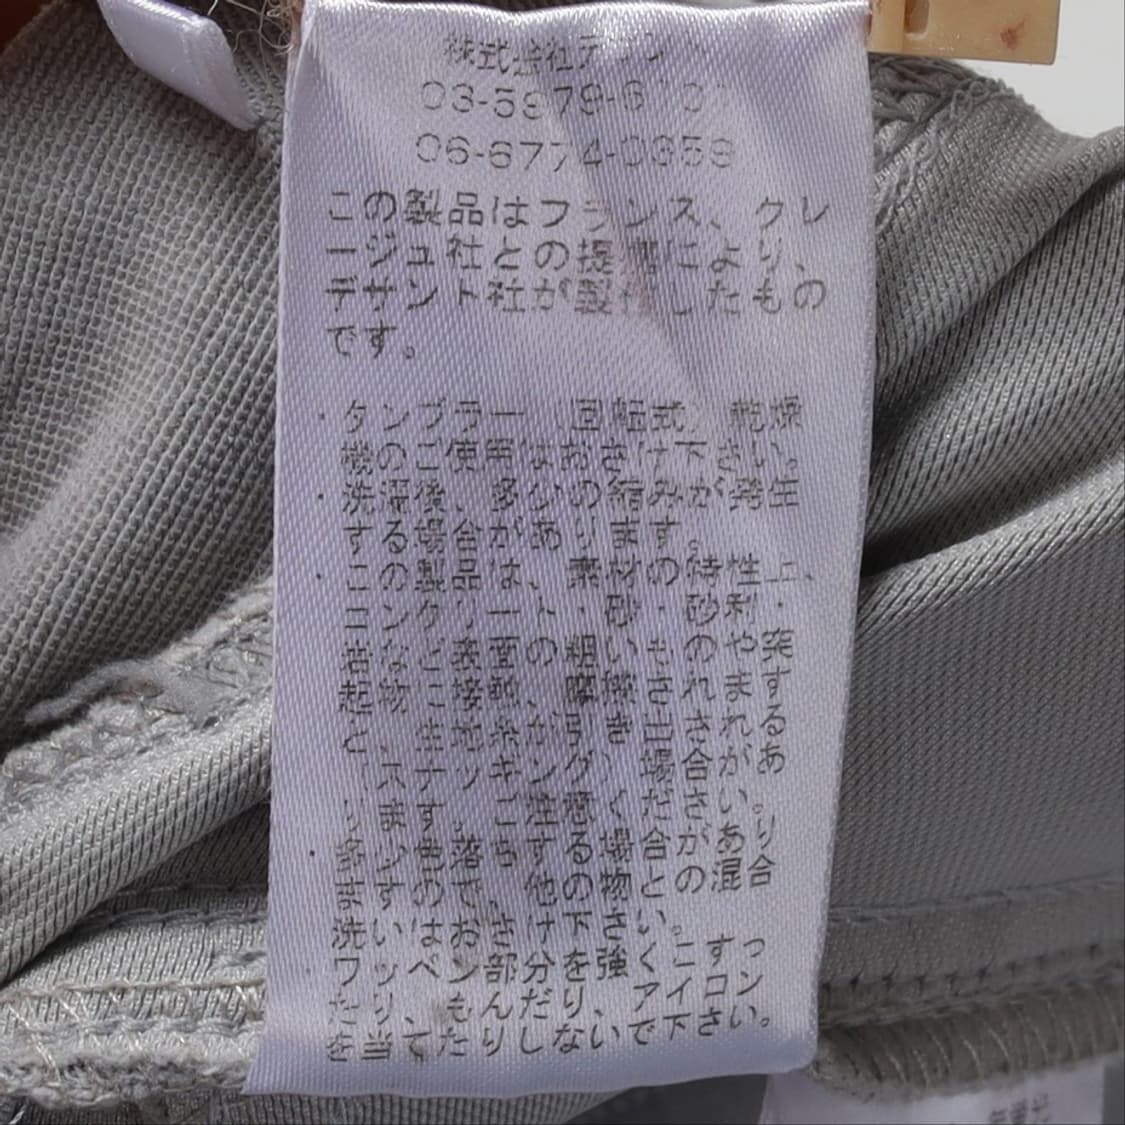 株式会社デサント
03-5979-6
06-6774-0359
この製品はフランス、クレ
ージュ社との提携により、
デサント社が製作したもの
です。
・タンブラー（回転式）乾燥
機のご使用はおさけ下さい。
・洗濯後、多少の縮みが発生
する場合があります。
・この製品は、素材の特性上、
コンクリート・砂・砂利・
岩など表面の粗いものや突
起物に接触、摩擦されます
と、生地糸が引き出される
（スナッギング）場合があ
ります。ご注意ください。
・多少色落ちする場合があり
ますので、他の物との混合
洗いはおさけ下さい。
・ワッペン部分を強くこすっ
たり、もんだり、アイロン
を当てたりしないで下さい。